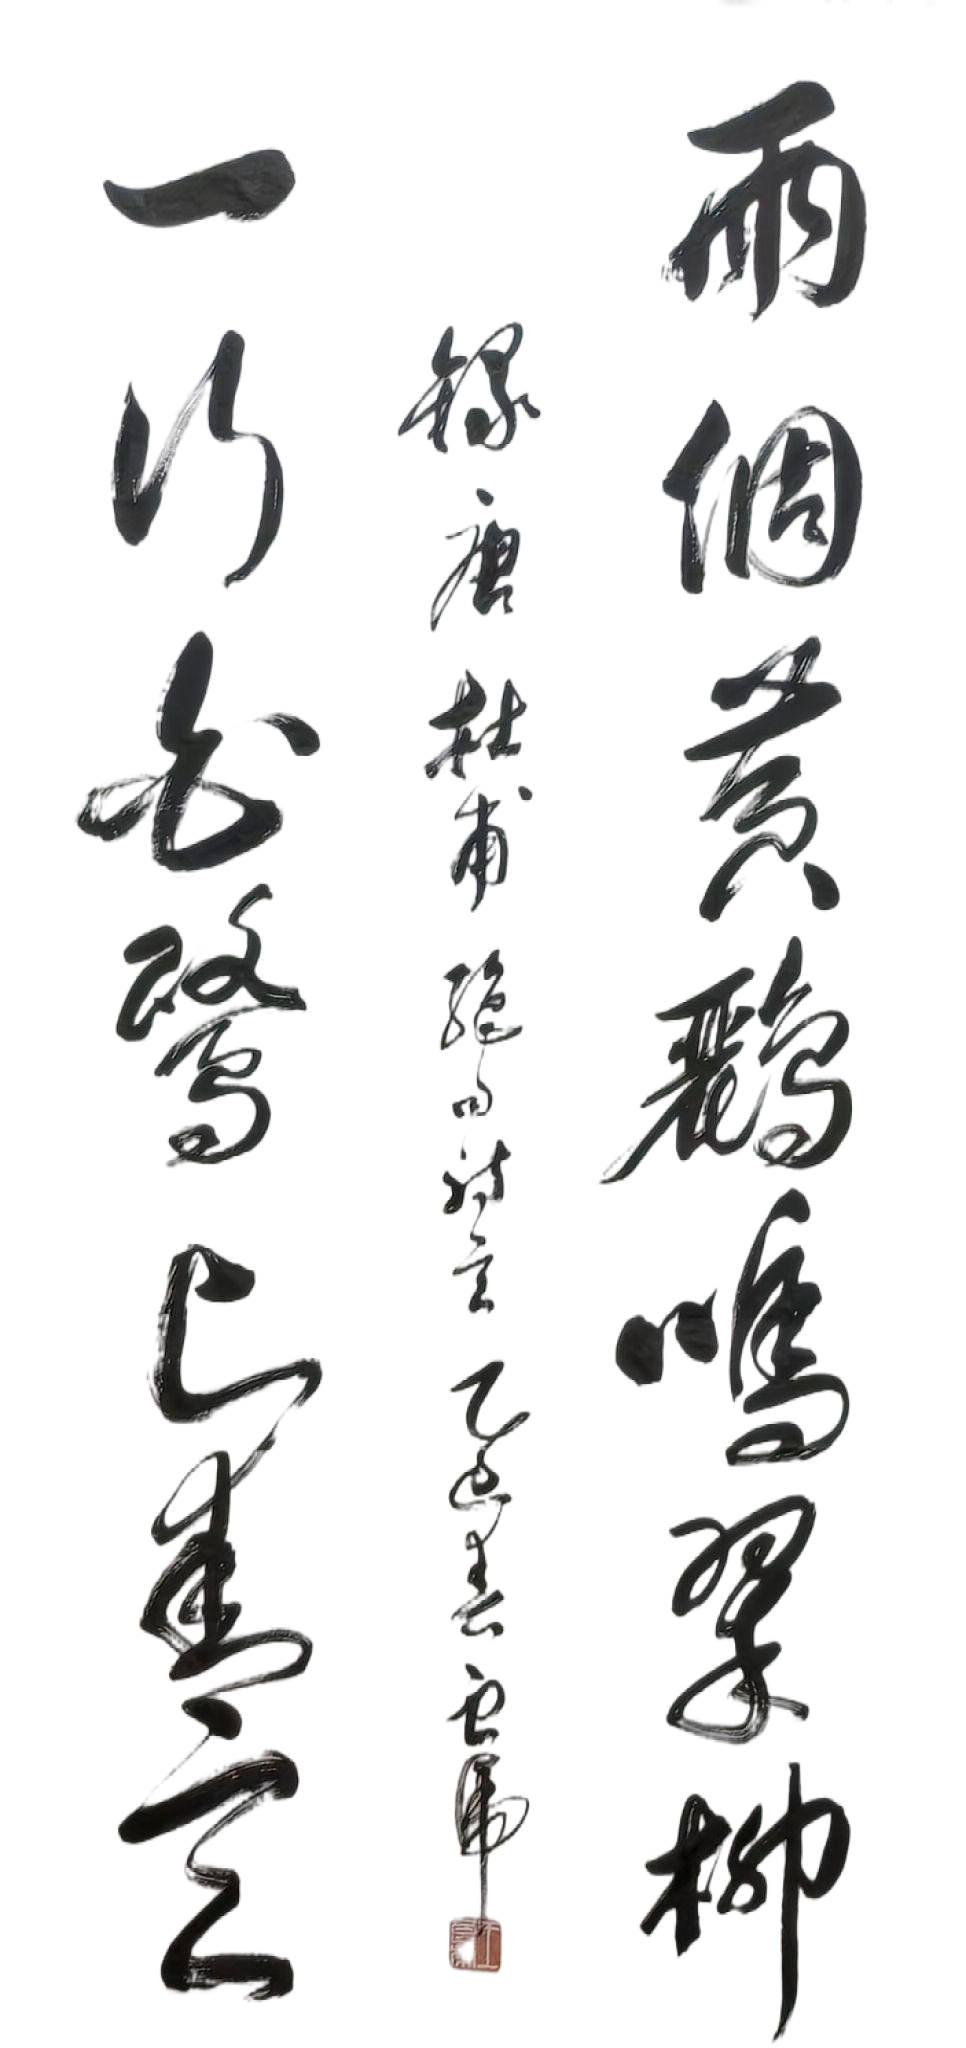 兩個黃鸝鳴翠柳
一行白鷺上青天
錄唐杜甫絕句詩 乙巳春